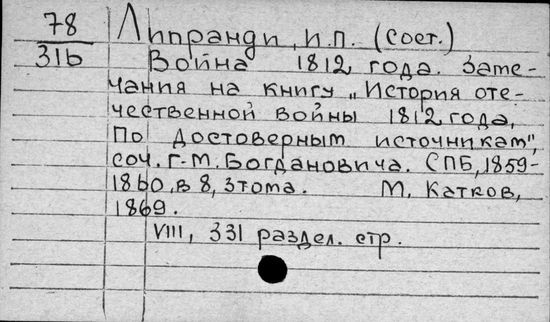 78 Липранди, И.П. (сост.)
31б Война 1812 года. Заме-
чания на книгу „История оте-
чественной войны 1812 года,
по достоверным источникам",
соч. Г-М. Богдановича. СПБ, 1859-
1860, в 8, 3 тома. М. Катков,
1869.
VIII, 331 раздел. стр.